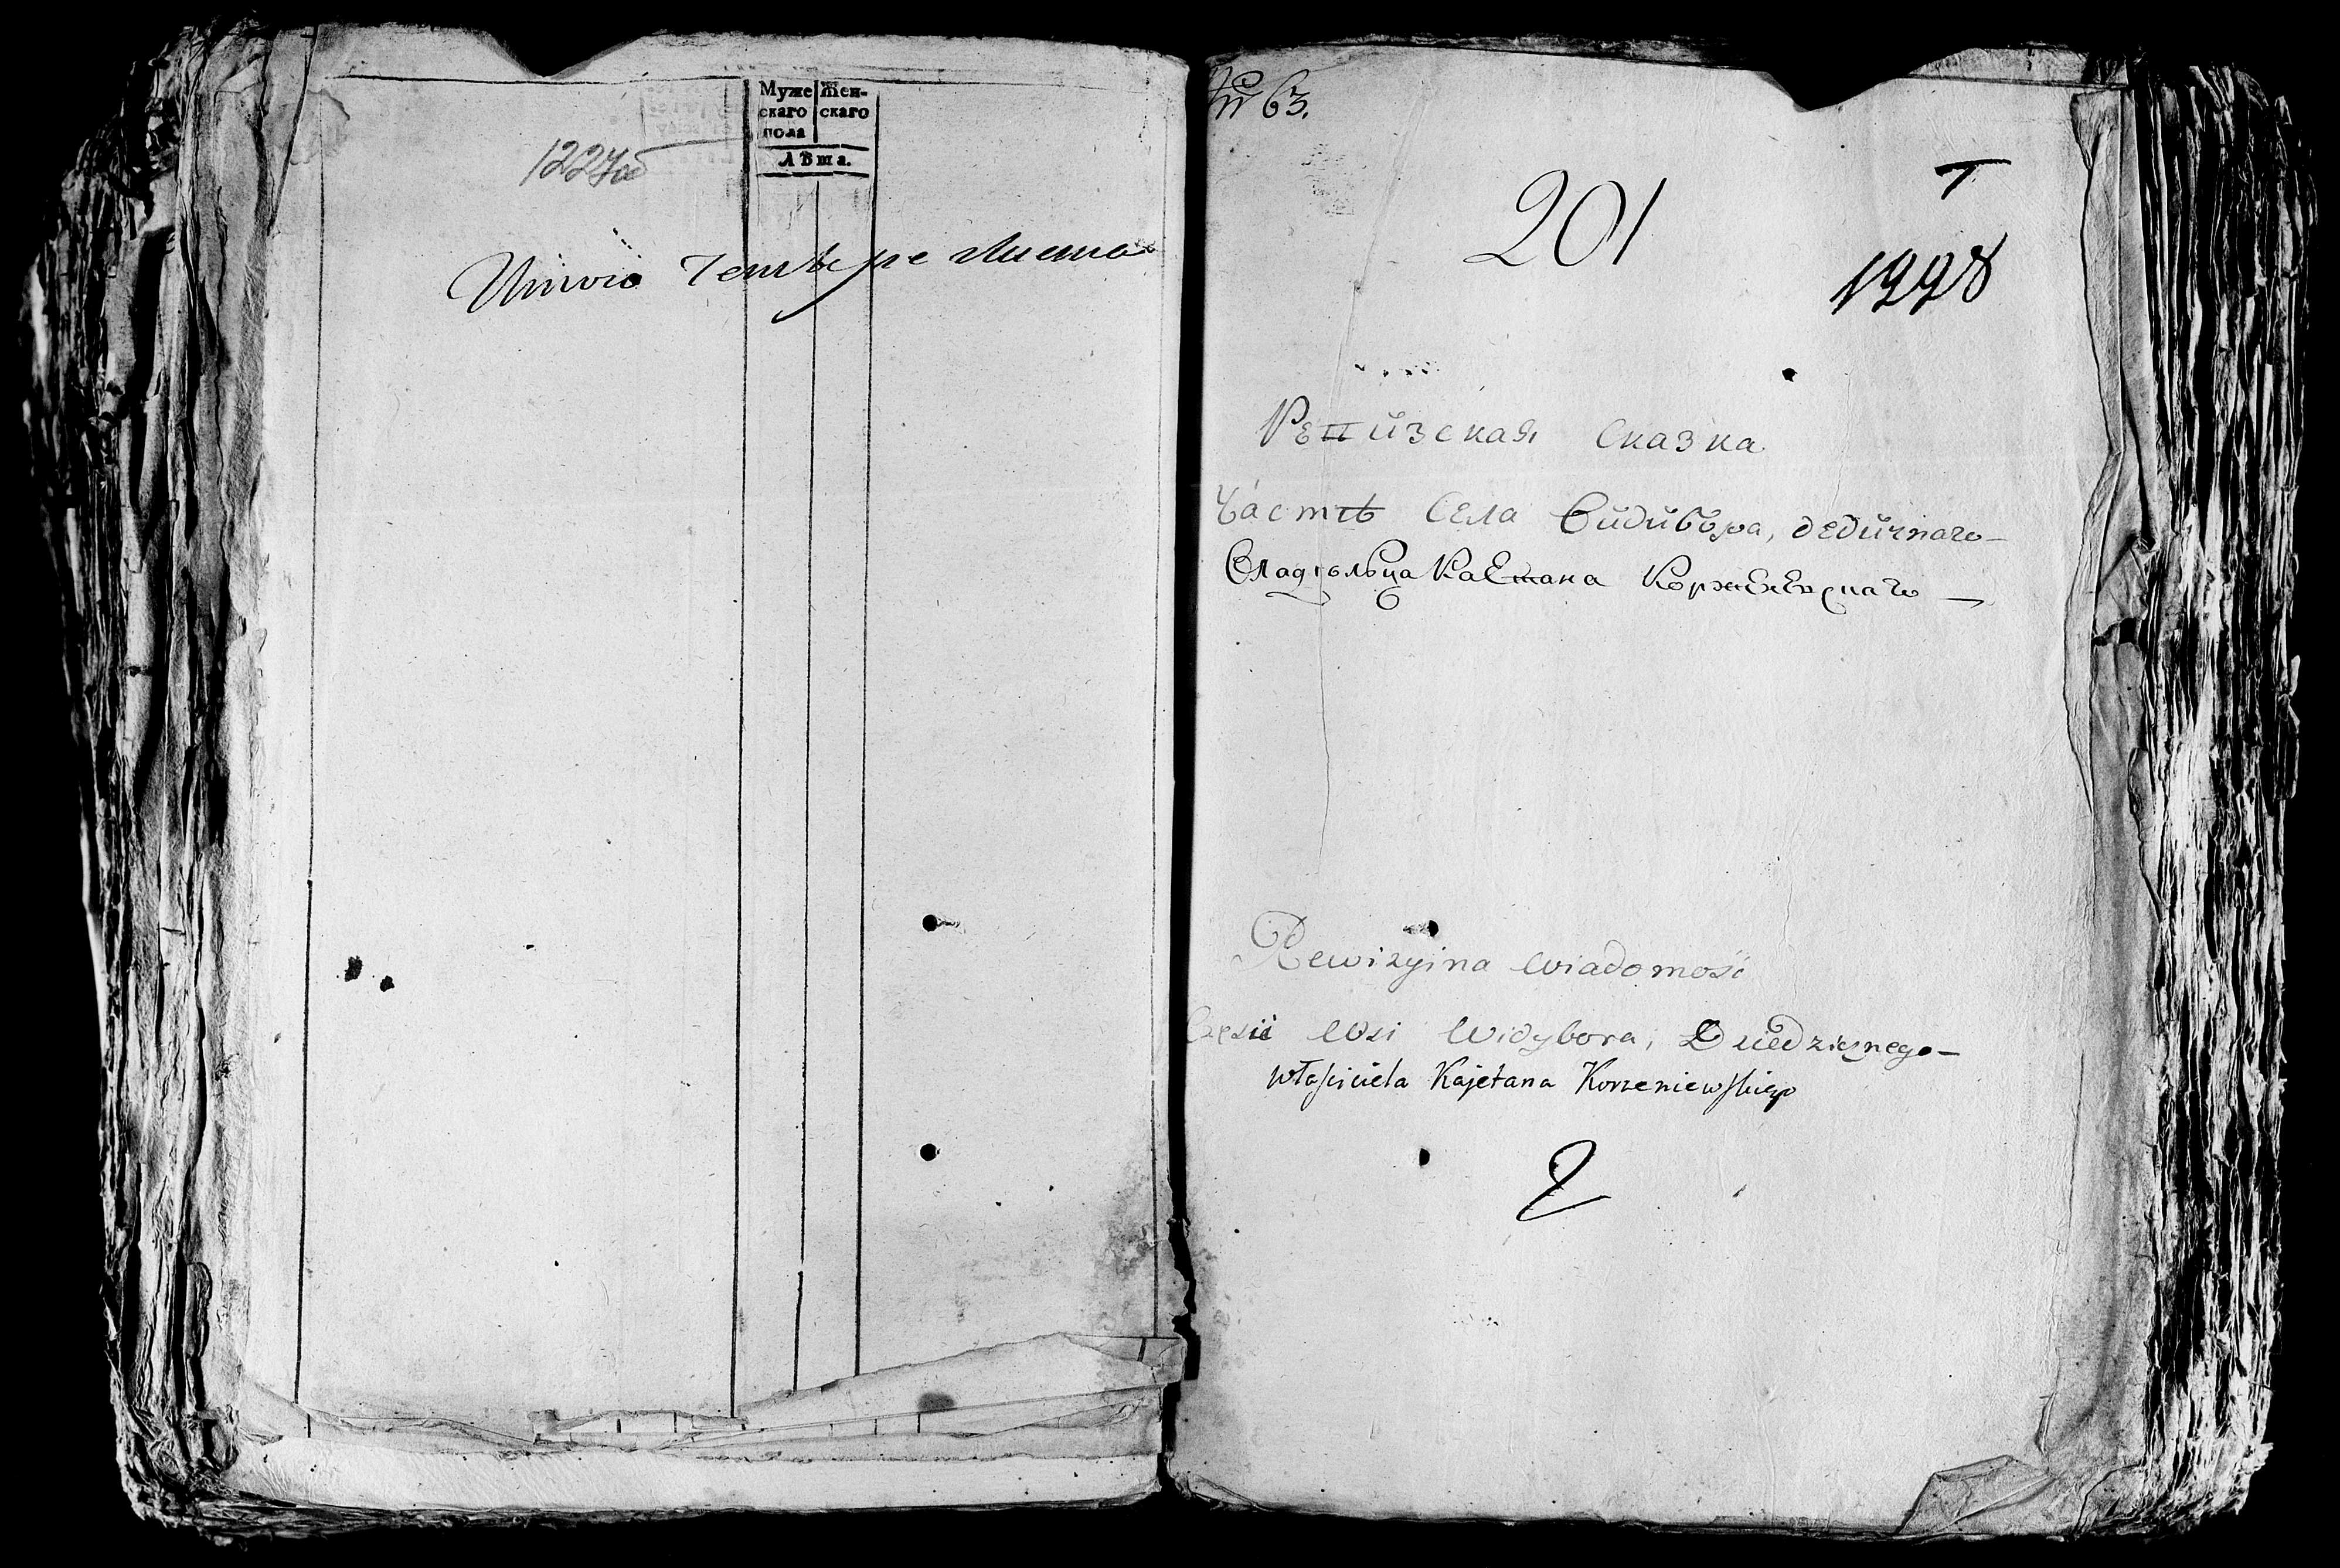 Муже Жен-
скаго скаго
пола
Лѣта.
1227об
Итого Четыре листа
№ 63.
201
1228
Ревизская сказка
Часть Села Видибора, дедичнаго
Владѣльца Каетана Корженевскаго
Rewizyina wiadomość
Części Wsi Widybora, Dziedzicznego
właściciela Kajetana Korzeniewskiego
2